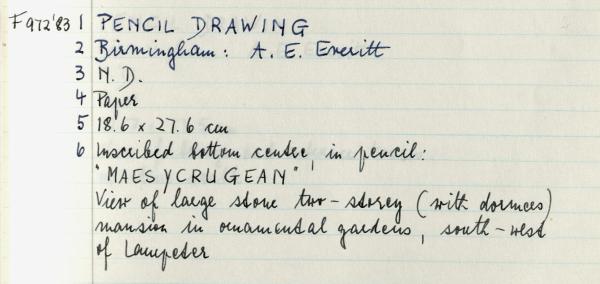 F972'83 1 PENCIL DRAWING
2 Birmingham: A. E. Everitt
3 N.D.
4 Paper
5 18.6 x 27.6 cm
6 Inscribed bottom center, in pencil:
"MAESYCRUGEAN"
View of large stone two-storey (with dormers)
mansion in ornamental gardens, south-west
of Lampeter